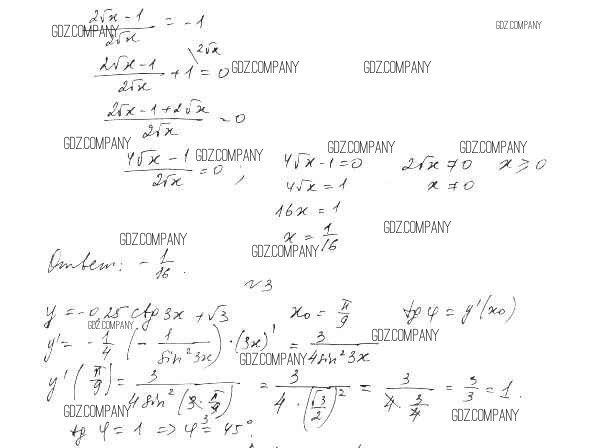 (2√x − 1)/(2√x) = −1
GDZ.COMPANY GDZ.COMPANY
(2√x − 1)/(2√x) + 1 \ 2√x = 0
GDZ.COMPANY GDZ.COMPANY
(2√x − 1 + 2√x)/(2√x) = 0
GDZ.COMPANY GDZ.COMPANY GDZ.COMPANY
(4√x − 1)/(2√x) = 0, 4√x − 1 = 0 2√x ≠ 0 x ≥ 0
GDZ.COMPANY
4√x = 1 x ≠ 0
16x = 1
GDZ.COMPANY
x = 1/16
GDZ.COMPANY GDZ.COMPANY
Ответ: − 1/16.
№3
y = −0,25 ctg 3x + √3 x₀ = π/9 tg φ = y'(x₀)
GDZ.COMPANY GDZ.COMPANY
y' = − 1/4 (− 1/(sin² 3x)) · (3x)' = 3/(4 sin² 3x)
GDZ.COMPANY
y'(π/9) = 3/(4 sin² (3 · π/9)) = 3/(4 · (√3/2)²) = 3/(4 · 3/4) = 3/3 = 1.
GDZ.COMPANY GDZ.COMPANY
tg φ = 1 => φ = 45°.